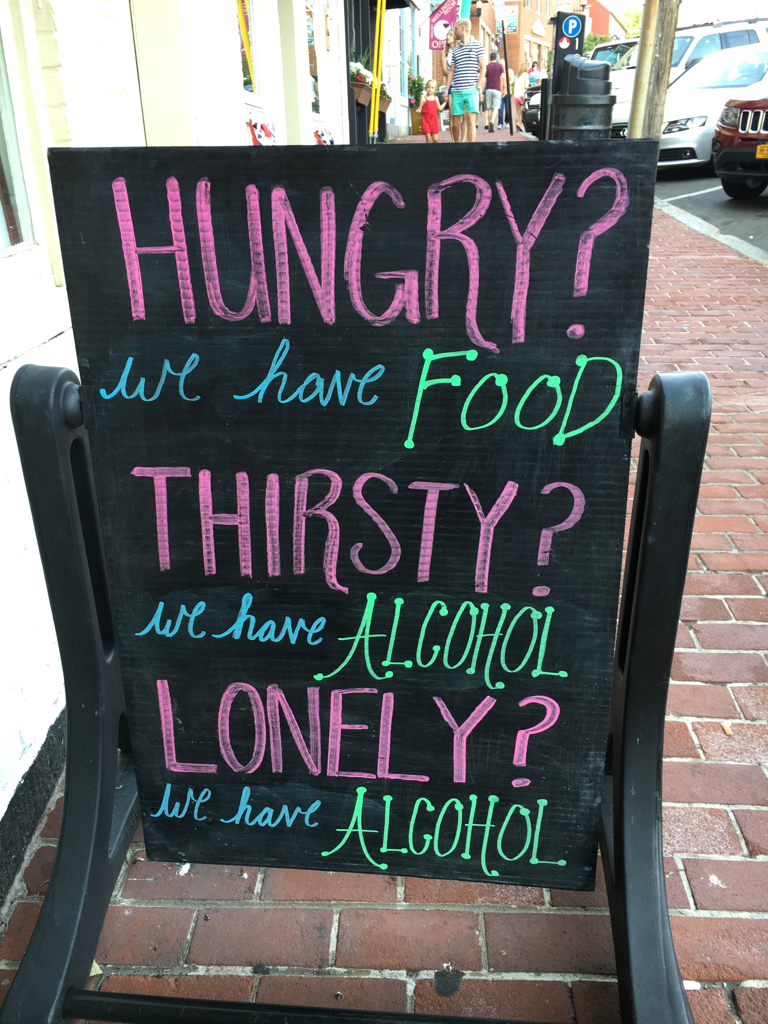 HUNGRY?
we have FOOD
THIRSTY?
we have ALCOHOL
LONELY?
we have ALCOHOL
P